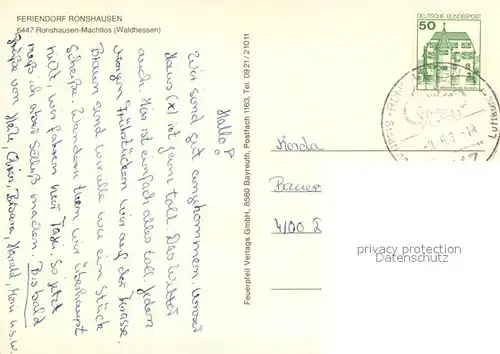 FERIENDORF RONSHAUSEN
6447 Ronshausen-Machtlos (Waldhessen)
Hallo!
Wir sind gut angekommen. Unser
Haus (x) ist ganz toll. Das Wetter
auch. Hier ist einfach alles toll. Jeden
Morgen frühstücken wir auf der Terasse.
Braun sind wir alle wie ein Stück
Scheiße. Wandern tuen wir überhaupt
nicht, wir fahren nur Taxi. So jetzt
muß ich aber Schluß machen. Bis bald
Grüße von Harald, Moni u.s.w.
Feuerpfeil Verlags GmbH, 8580 Bayreuth, Postfach 1163, Tel. 0921/21011
DEUTSCHE BUNDESPOST
50
Luftkur
4100
privacy protection
Datenschutz